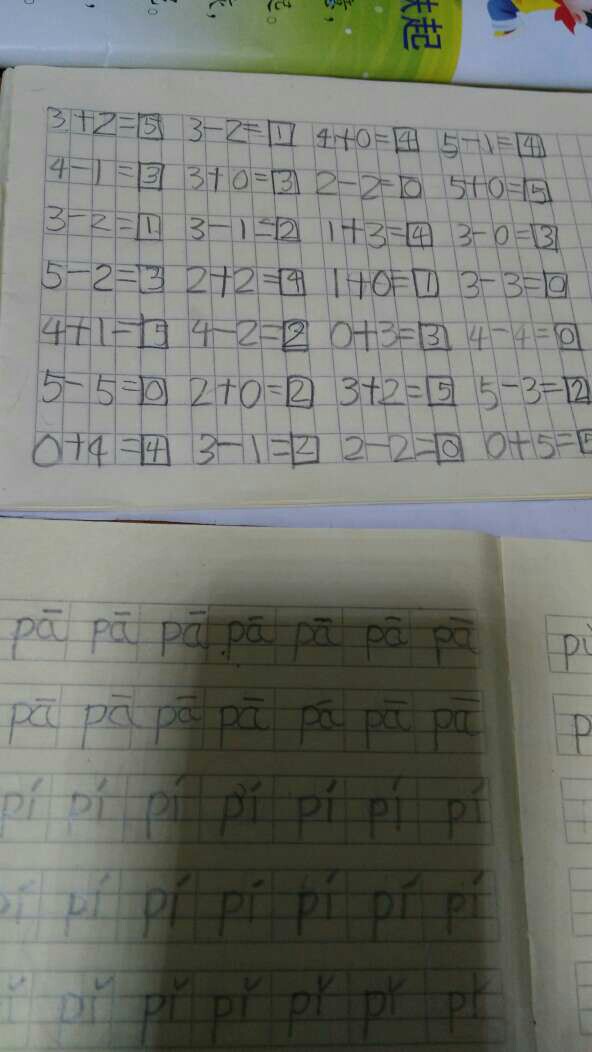 3+2=5 3-2=1 4+0=4 5-1=4
4-1=3 3+0=3 2-2=0 5+0=5
3-2=1 3-1=2 1+3=4 3-0=3
5-2=3 2+2=4 1+0=1 3-3=0
4+1=5 4-2=2 0+3=3 4-4=0
5-5=0 2+0=2 3+2=5 5-3=2
0+4=4 3-1=2 2-2=0 0+5=5
pā pā pā pā pā pā pā
pā pā pā pā pā pā pā
pí pí pí pí pí pí pí
pí pí pí pí pí pí pí
pǐ pǐ pǐ pǐ pǐ pǐ